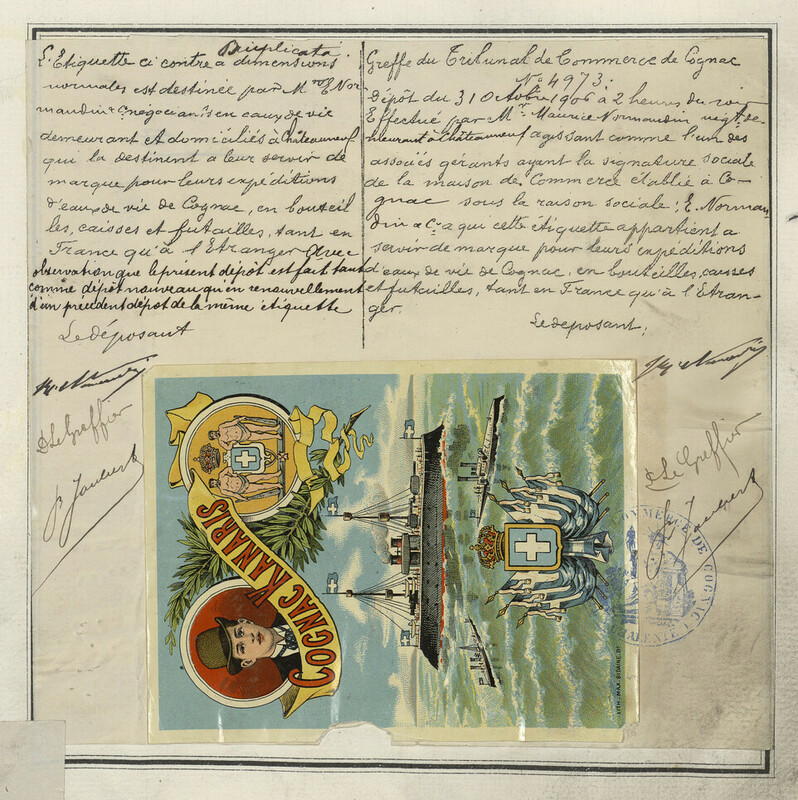 Duplicata
L'Etiquette ci contre a dimensions
normales est destinée par M. E. Nor
maudin & Cie négocians en eaux de vie
demeurant et domiciliés à Châteauneuf
qui la destinent a leur servir de
marque pour leurs expéditions
d'eaux de vie de Cognac, en bouteil
les, caisses et futailles, tant en
France qu'à l'Etranger avec
observation que le présent dépôt est fait tant
comme dépôt nouveau qu'en renouvellement
d'un précédent dépôt de la même étiquette
Le déposant
D Le Greffier
Greffe du Tribunal de Commerce de Cognac
No 4973.
Dépôt du 31 Octobre 1906 à 2 heures du soir
Effectué par Mr. Maurice Normaudin négt. de-
meurant à Châteauneuf agissant comme l'un des
associés gérants ayant la signature sociale
de la maison de Commerce établie à Co-
gnac sous la raison sociale: E. Norman
din & Cie a qui cette étiquette appartient a
servir de marque pour leurs expéditions
d'eaux de vie de Cognac, en bouteilles, caisses
et futailles, tant en France qu'à l'Etran-
ger.
Le déposant,
D Le Greffier
COGNAC KANARIS
LITH. MAX. SIDAINE. BX
COMMERCE DE COGNAC